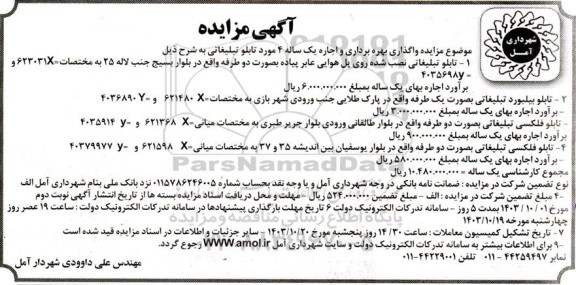 شهرداری
آمل
آگهی مزایده
موضوع مزایده واگذاری بهره برداری و اجاره یک ساله ۴ مورد تابلو تبلیغاتی به شرح ذیل
۱ - تابلو تبلیغاتی نصب شده روی پل هوایی عابر پیاده بصورت دو طرفه واقع در بلوار بسیج جنب لاله ۲۵ به مختصات=X۶۲۳۰۳۱ و
=y۴۰۳۵۶۹۸
برآورد اجاره بهای یک ساله بمبلغ ۶.۰۰۰.۰۰۰.۰۰۰ ریال
۲- تابلو بیلبورد تبلیغاتی بصورت یک طرفه واقع در پارک طلایی جنب ورودی شهر بازی به مختصات=X ۶۲۱۴۸۰ و =Y ۴۰۳۶۸۹۰
- برآورد اجاره بهای یک ساله بمبلغ ۳.۰۰۰.۰۰۰.۰۰۰ ریال
۳- تابلو فلکسی تبلیغاتی بصورت دو طرفه واقع در بلوار طالقانی ورودی بلوار جریر طبری به مختصات میانی=X ۶۲۱۳۶۸ و =y ۴۰۳۵۹۱۴
برآورد اجاره بهای یک ساله بمبلغ ۹۰۰.۰۰۰.۰۰۰ ریال
۴- تابلو فلکسی تبلیغاتی بصورت دو طرفه واقع در بلوار یوسفیان بین اندیشه ۳۵ و ۳۷ به مختصات میانی=X ۶۲۱۵۹۸ و =y ۴۰۳۷۹۹۷۷
- برآورد اجاره بهای یک ساله بمبلغ ۵۸۰.۰۰۰.۰۰۰ ریال
مجموع کارشناسی یک ساله = ۱۰.۴۸۰.۰۰۰.۰۰۰ ریال
نوع تضمین شرکت در مزایده : ضمانت نامه بانکی در وجه شهرداری آمل و یا وجه نقد بحساب شماره ۰۱۱۵۷۸۶۲۴۶۰۰۵ نزد بانک ملی بنام شهرداری آمل الف
۴- مبلغ تضمین شرکت در مزایده : الف - مبلغ تضمین ۵۲۴.۰۰۰.۰۰۰ ریال - مهلت و محل دریافت اسناد مزایده بسته ها از تاریخ انتشار آگهی نوبت دوم
۱۴۰۳/۱۰/۰۱ بمدت ۵ روز - سامانه تدرکات الکترونیک دولت ۶ تاریخ مهلت بارگذاری پیشنهادها در سامانه تدرکات الکترونیک دولت : ساعت ۱۹ عصر روز
چهارشنبه مورخه ۱۴۰۳/۱۰/۱۹
۷- تاریخ تشکیل کمیسیون معاملات : ساعت ۱۴/۳۰ روز پنجشنبه مورخ ۱۴۰۳/۱۰/۲۰ - سایر جزئیات و اطلاعات در اسناد مزایده قید شده است
۹- برای اطلاعات بیشتر به سامانه تدرکات الکترونیک دولت و سایت شهرداری آمل www.amol.ir رجوع گردد.
نمابر ۴۴۲۵۹۴۹۷ - ۰۱۱ تلفن ۴۴۲۲۹۰۰۱-۰۱۱
مهندس علی داوودی شهردار آمل
ParsNamadData
پایگاه اطلاع رسانی مناقصه و مزایده